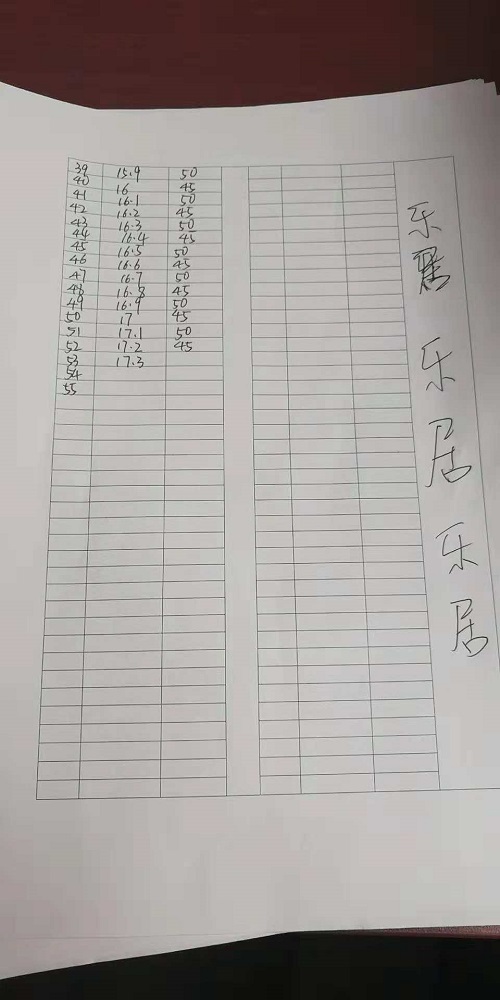 39 15.9 50
40 16 45
41 16.1 50
42 16.2 45
43 16.3 50
44 16.4 45
45 16.5 50
46 16.6 45
47 16.7 50
48 16.8 45
49 16.9 50
50 17 45
51 17.1 50
52 17.2 45
53 17.3
54
55
乐
乐
居
乐
居